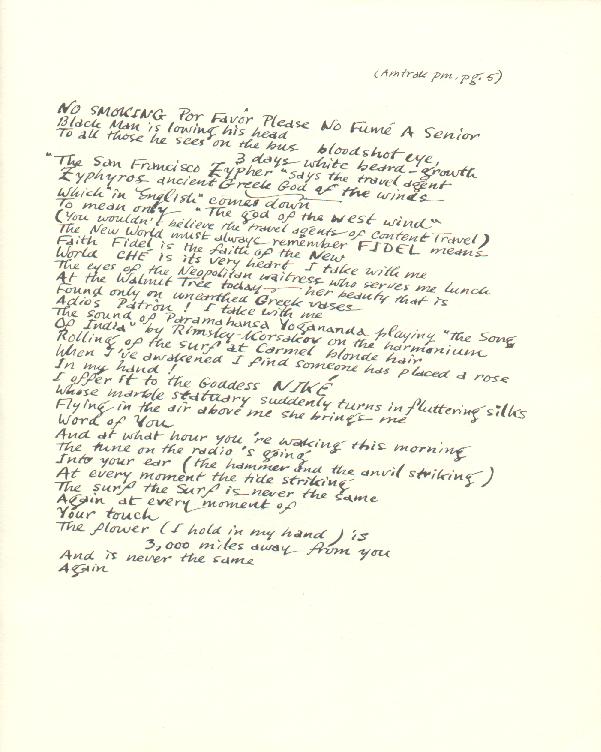 (Amtrak pm, pg. 5)
NO SMOKING Por Favor Please No Fumé A Senior
Black Man is lowing his head
To all those he sees on the bus bloodshot eye,
3 days white beard-growth
"The San Francisco Zypher" says the travel agent
Zyphyros ancient Greek God of the winds
Which "in English" comes down
To mean only "The god of the west wind"
(You wouldn't believe the travel agents of Content Travel)
The New World must always remember FIDEL means
Faith Fidel is the faith of the New
World CHE is its very heart I take with me
The eyes of the Neopolitan waitress who serves me lunch
At the Walnut Tree today — her beauty that is
Found only on unearthed Greek vases
Adios Patron! I take with me
The sound of Paramahansa Yogananda playing "The Song
Of India" by Rimsky-Korsakov on the harmonium
Rolling of the surf at Carmel blonde hair
When I've awakened I find someone has placed a rose
In my hand!
I offer it to the Goddess NIKÉ
Whose marble statuary suddenly turns in fluttering silks
Flying in the air above me she brings me
Word of You
And at what hour you're waking this morning
The tune on the radio's going
Into your ear (the hammer and the anvil striking)
At every moment the tide striking
The surf the Surf is never the same
Again at every moment of
Your touch
The flower (I hold in my hand) is
3,000 miles away from you
And is never the same
Again